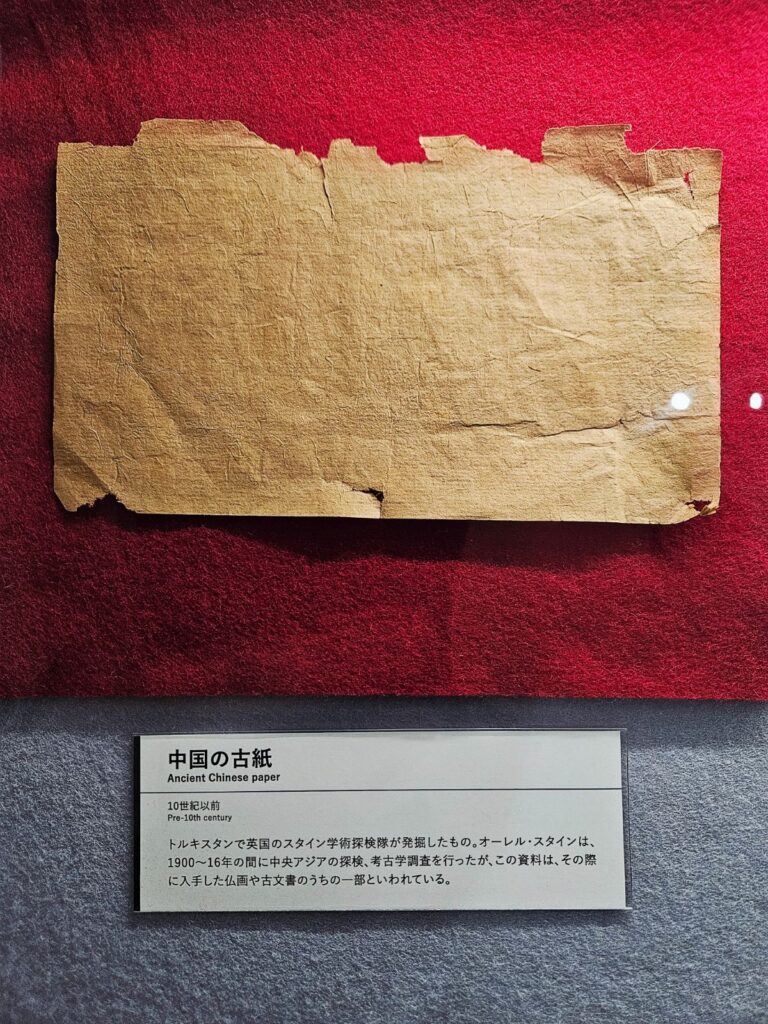 中国の古紙
Ancient Chinese paper
10世紀以前
Pre-10th century
トルキスタンで英国のスタイン学術探検隊が発掘したもの。オーレル・スタインは、
1900〜16年の間に中央アジアの探検、考古学調査を行ったが、この資料は、その際
に入手した仏画や古文書のうちの一部といわれている。